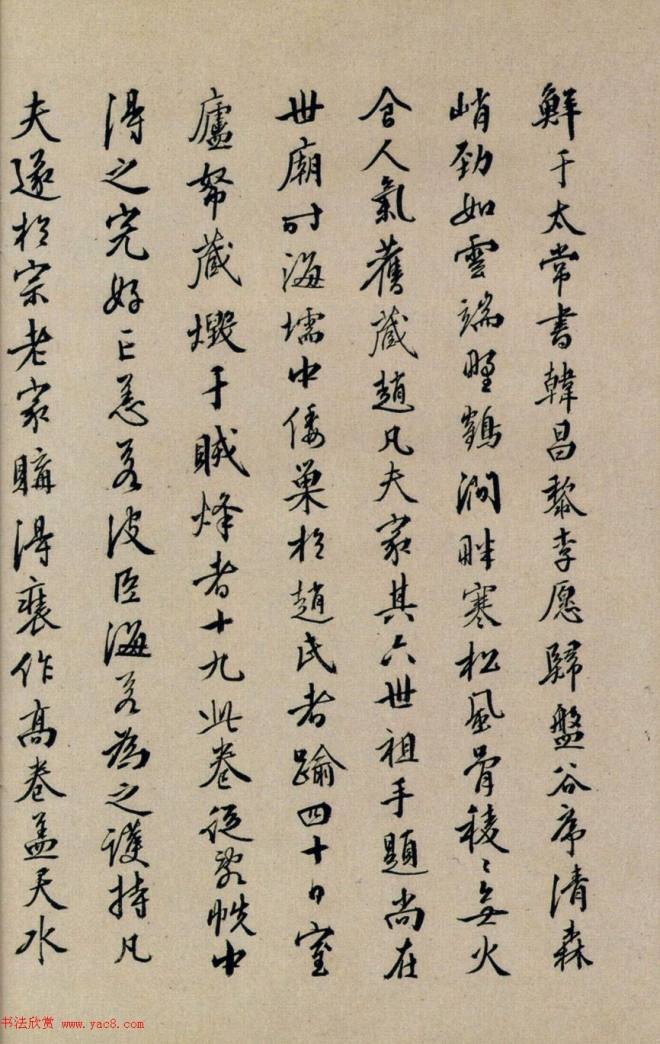 鮮于太常書韓昌黎李愿歸盤谷序清森
峭勁如雲端野鶴澗畔寒松風骨稜〻無火
食人氣舊藏趙凡夫家其六世祖手題尚在
世廟时海壖中倭巢於趙氏者踰四十日室
廬帑蔵燬于賊烽者十九此卷從帙中
淂之完好亡恙若波臣海若為之護持凡
夫遂於宗老家購淂裝作高卷盖天水
书法欣赏 www.yac8.com